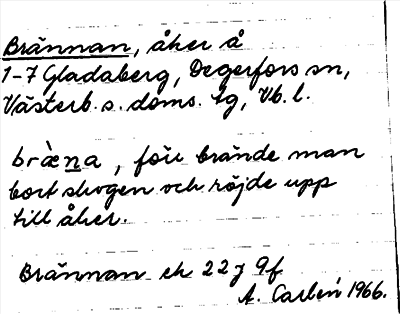 Brännan, åker å
1-7 Gladaberg, Degerfors sn,
Västerb. s. doms. tg, Vb. l.
brὰna, förr brände man
bort skogen och röjde upp
till åker.
Brännan ek 22j 9f
A. Carlén 1966.